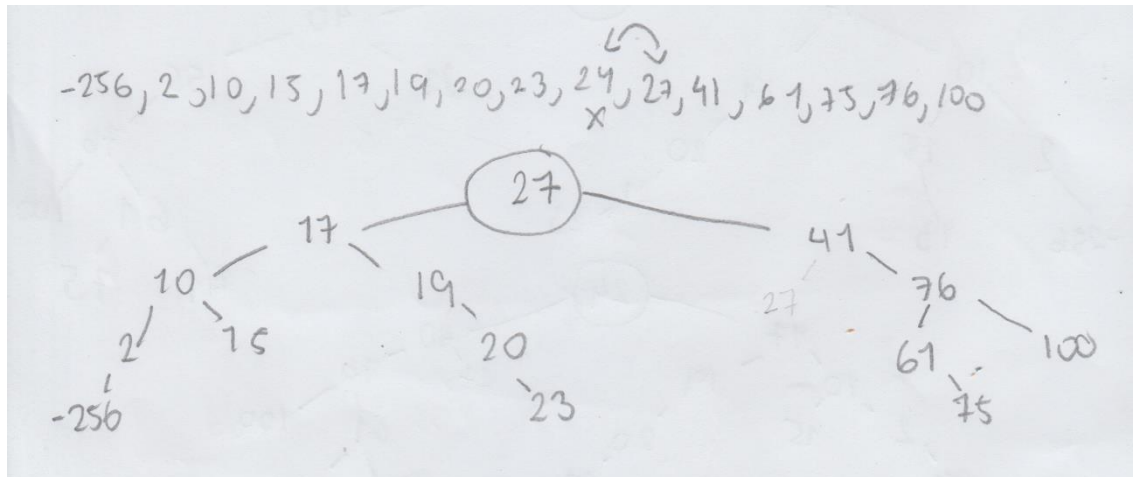 -256, 2, 10, 15, 17, 19, 20, 23, 24, 27, 41, 61, 75, 76, 100
x
27
17 41
10 19 76
27
2 15 20 61 100
-256 23 75